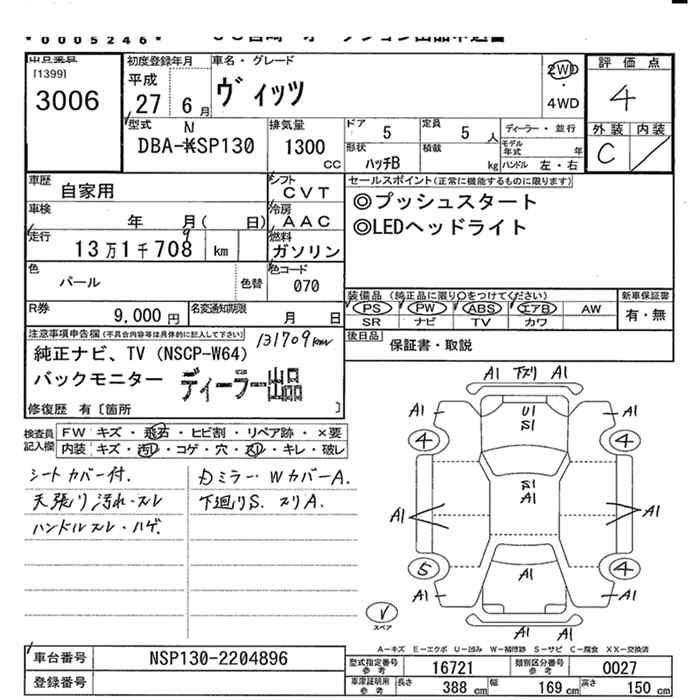 0005246
出品番号
[1399]
3006
初度登録年月
平成
27 6月
車名・グレード
ヴィッツ
2WD
4WD
評価点
4
外装 内装
C
型式
N
DBA-SP130
排気量
1300
CC
ドア
5
定員
5 人
ディーラー・並行
モデル年式 年
形状
ハッチB
積載
kg
ハンドル 左・右
車歴
自家用
シフト
CVT
セールスポイント(正常に機能するものに限ります)
◎プッシュスタート
◎LEDヘッドライト
車検
年 月( 日)
冷房
AAC
走行
13万1千708 km
9
燃料
ガソリン
色
パール
色替
色コード
070
装備品 (純正品に限り○をつけてください)
PS PW ABS エアB AW
SR ナビ TV カワ
新車保証書
有・無
R券
9,000 円
名変通知期限
月 日
後日品
保証書・取説
注意事項申告欄(不具合内容等は具体的に記入して下さい)
131709km
純正ナビ、TV (NSCP-W64)
バックモニター ディーラー出品
修復歴 有〔箇所 〕
検査員記入欄
FW キズ・飛石・ヒビ割・リペア跡・×要
内装 キズ・汚れ・コゲ・穴・スレ・キレ・破レ
シートカバー付.
天張り汚れ・スレ
ハンドルスレ・ハゲ.
ミラー・WカバーA.
下廻りS. スリA.
A1 下ズリ A1
A1 U1 A1
S1
4 4
S1
A1
A1 A1
5 4
A1
A1 A1
A1 A1
V
スペア
A-キズ E-エクボ U-凹み W-補修跡 S-サビ C-腐食 XX-交換済
車台番号
NSP130-2204896
登録番号
型式指定番号参考
16721
類別区分番号参考
0027
車庫証明用参考
長さ 388 cm 幅 169 cm 高さ 150 cm